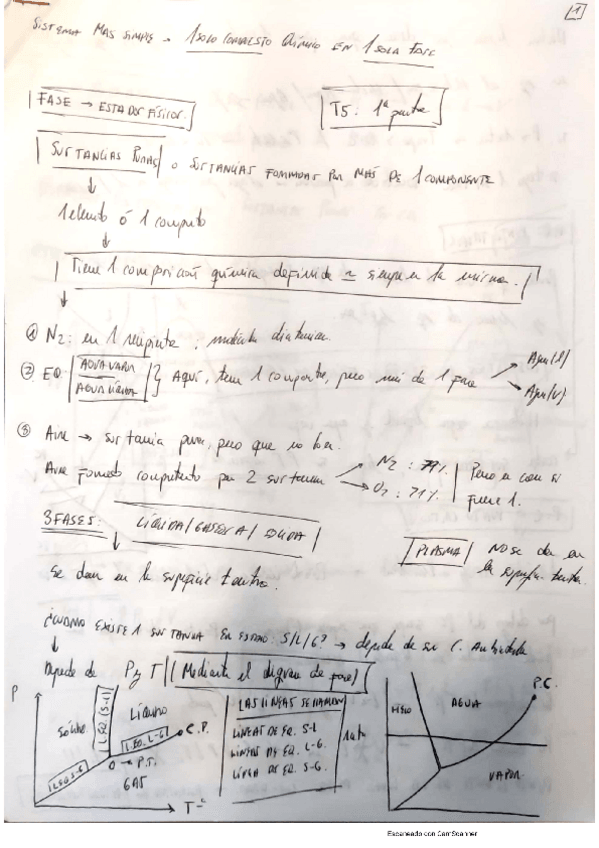 1
SISTEMA MAS SIMPLE → 1 SOLO COMPUESTO QUÍMICO EN 1 SOLA FASE
FASE → ESTADOS FÍSICOS.
T5: 1ª parte
SUSTANCIAS PURAS o SUSTANCIAS FORMADAS POR MÁS DE 1 COMPONENTE
1 elemento ó 1 compuesto
Tiene 1 composición química definida siempre la misma.
① N2: en 1 recipiente: molécula diatómica.
② EQ. AGUA VAPOR
AGUA LÍQUIDA
} Aquí, tiene 1 componente, pero más de 1 fase
Agua (l)
Agua (v)
③ Aire → sustancia pura, pero que no lo es.
Aire formado por 2 sustancias
N2: 79%
O2: 21%
Pero es como si fuese 1.
3 FASES: LÍQUIDA / GASEOSA / SÓLIDA
PLASMA
NO SE da en la superficie terrestre.
Se dan en la superficie terrestre.
¿CUANDO EXISTE 1 SUSTANCIA EN ESTADO S/L/G? → depende de su C. Ambientales
Depende de P y T (Mediante el diagrama de fase)
P
Sólido
L. EQ. (S-L)
LÍQUIDO
L. EQ. L-G
C.P.
L. EQ S-G
P.T.
GAS
T
LAS LÍNEAS SE LLAMAN
LÍNEAS DE EQ. S-L
LÍNEAS DE EQ. L-G.
LÍNEA DE EQ. S-G
1 atm
HIELO
AGUA
P.C.
VAPOR
Escaneado con CamScanner